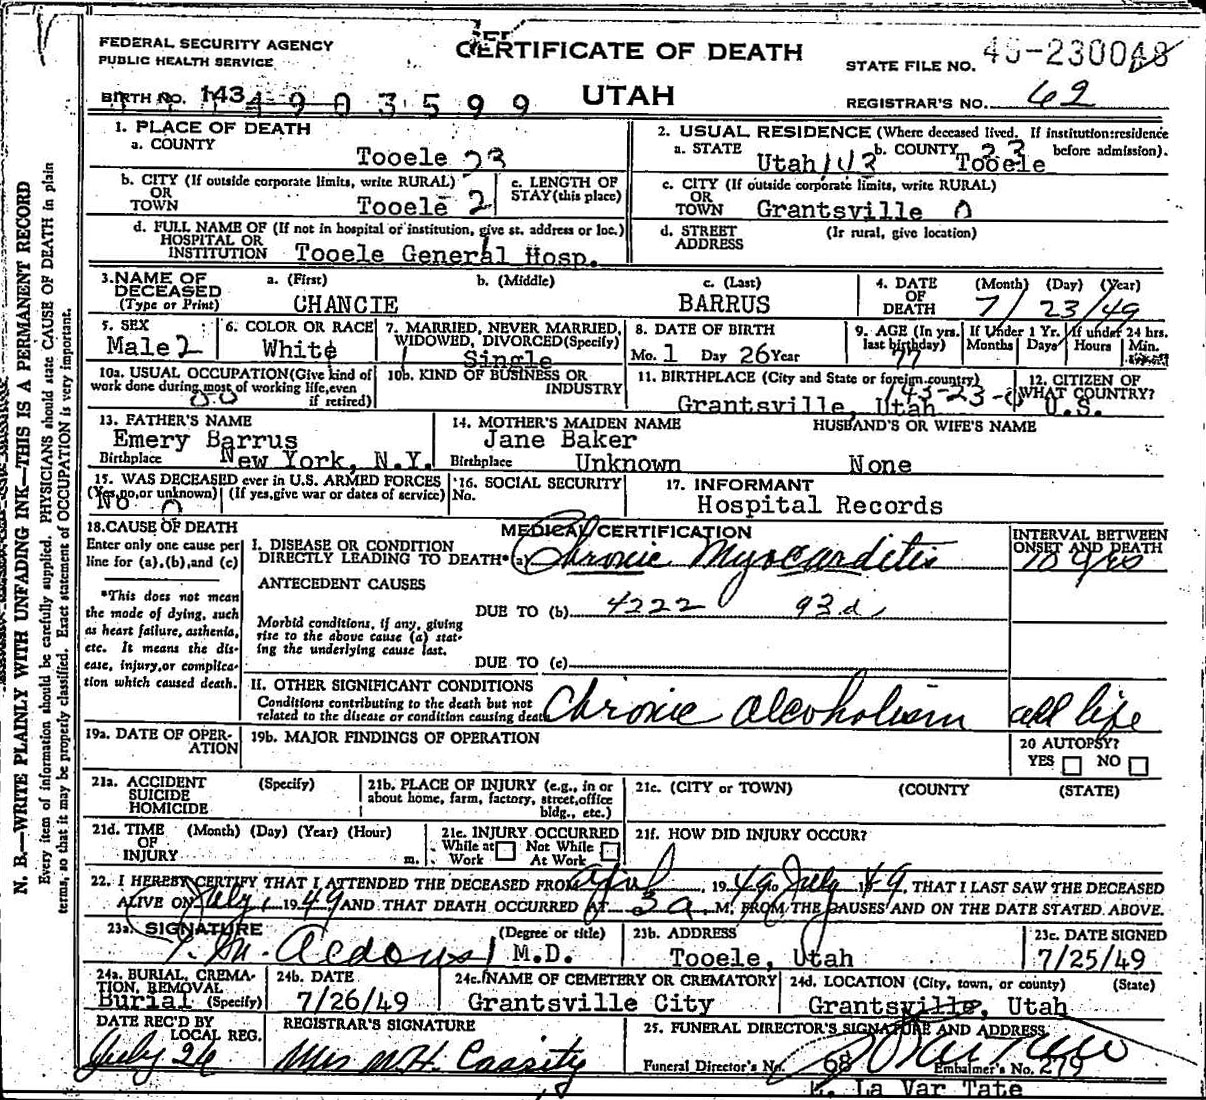 FEDERAL SECURITY AGENCY
PUBLIC HEALTH SERVICE
CERTIFICATE OF DEATH
STATE FILE NO. 49-230048
BIRTH NO. 143 4903599
UTAH
REGISTRAR'S NO. 62
1. PLACE OF DEATH
a. COUNTY
Tooele 23
2. USUAL RESIDENCE (Where deceased lived. If institution:residence before admission).
a. STATE Utah 143 b. COUNTY 23 Tooele
b. CITY (If outside corporate limits, write RURAL)
OR
TOWN Tooele 2
c. LENGTH OF
STAY(this place)
c. CITY (If outside corporate limits, write RURAL)
OR
TOWN Grantsville 0
d. FULL NAME OF (If not in hospital or institution, give st. address or loc.)
HOSPITAL OR
INSTITUTION Tooele General Hosp.
d. STREET (If rural, give location)
ADDRESS
3. NAME OF
DECEASED
(Type or Print)
a. (First)
CHANCIE
b. (Middle)
c. (Last)
BARRUS
4. DATE
OF
DEATH
(Month) (Day) (Year)
7/ 23/49
5. SEX
Male 2
6. COLOR OR RACE
White
7. MARRIED, NEVER MARRIED,
WIDOWED, DIVORCED(Specify)
Single
8. DATE OF BIRTH
Mo. 1 Day 26 Year
9. AGE (In yrs.
last birthday)
77
If Under 1 Yr.
Months Days
If under 24 hrs.
Hours Min.
10a. USUAL OCCUPATION(Give kind of
work done during most of working life,even
if retired)
10b. KIND OF BUSINESS OR
INDUSTRY
11. BIRTHPLACE (City and State or foreign country)
143-23-0
Grantsville, Utah
12. CITIZEN OF
WHAT COUNTRY?
U.S.
13. FATHER'S NAME
Emery Barrus
Birthplace New York, N.Y.
14. MOTHER'S MAIDEN NAME
Jane Baker
Birthplace Unknown
HUSBAND'S OR WIFE'S NAME
None
15. WAS DECEASED ever in U.S. ARMED FORCES
(Yes,no,or unknown) (If yes,give war or dates of service)
No 0
16. SOCIAL SECURITY
No.
17. INFORMANT
Hospital Records
18. CAUSE OF DEATH
Enter only one cause per
line for (a),(b),and (c)
*This does not mean
the mode of dying, such
as heart failure, asthenia,
etc. It means the dis-
ease, injury,or complica-
tion which caused death.
MEDICAL CERTIFICATION
I. DISEASE OR CONDITION
DIRECTLY LEADING TO DEATH*(a) Chronic Myocarditis
INTERVAL BETWEEN
ONSET AND DEATH
10 yrs
ANTECEDENT CAUSES
DUE TO (b) 4222 93d
Morbid conditions, if any, giving
rise to the above cause (a) stat-
ing the underlying cause last.
DUE TO (c)
II. OTHER SIGNIFICANT CONDITIONS
Conditions contributing to the death but not
related to the disease or condition causing death
Chronic alcoholism all life
19a. DATE OF OPER-
ATION
19b. MAJOR FINDINGS OF OPERATION
20 AUTOPSY?
YES NO
21a. ACCIDENT (Specify)
SUICIDE
HOMICIDE
21b. PLACE OF INJURY (e.g., in or
about home, farm, factory, street,office
bldg., etc.)
21c. (CITY or TOWN) (COUNTY (STATE)
21d. TIME (Month) (Day) (Year) (Hour)
OF
INJURY m.
21e. INJURY OCCURRED
While at Not While
Work At Work
21f. HOW DID INJURY OCCUR?
22. I HEREBY CERTIFY THAT I ATTENDED THE DECEASED FROM April, 1949 to July 1949, THAT I LAST SAW THE DECEASED
ALIVE ON July, 1949 AND THAT DEATH OCCURRED AT 3 a. M, FROM THE CAUSES AND ON THE DATE STATED ABOVE.
23a. SIGNATURE (Degree or title)
Aldous M.D.
23b. ADDRESS
Tooele, Utah
23c. DATE SIGNED
7/25/49
24a. BURIAL, CREMA-
TION, REMOVAL
Burial (Specify)
24b. DATE
7/26/49
24c. NAME OF CEMETERY OR CREMATORY
Grantsville City
24d. LOCATION (City, town, or county) (State)
Grantsville, Utah
DATE REC'D BY
LOCAL REG.
July 26
REGISTRAR'S SIGNATURE
Mrs W.H. Cassity
25. FUNERAL DIRECTOR'S SIGNATURE AND ADDRESS
Funeral Director's No. 68 Embalmer's No. 279
La Var Tate
N. B.—WRITE PLAINLY WITH UNFADING INK—THIS IS A PERMANENT RECORD
Every item of information should be carefully supplied. PHYSICIANS should state CAUSE OF DEATH in plain
terms, so that it may be properly classified. Exact statement of OCCUPATION is very important.